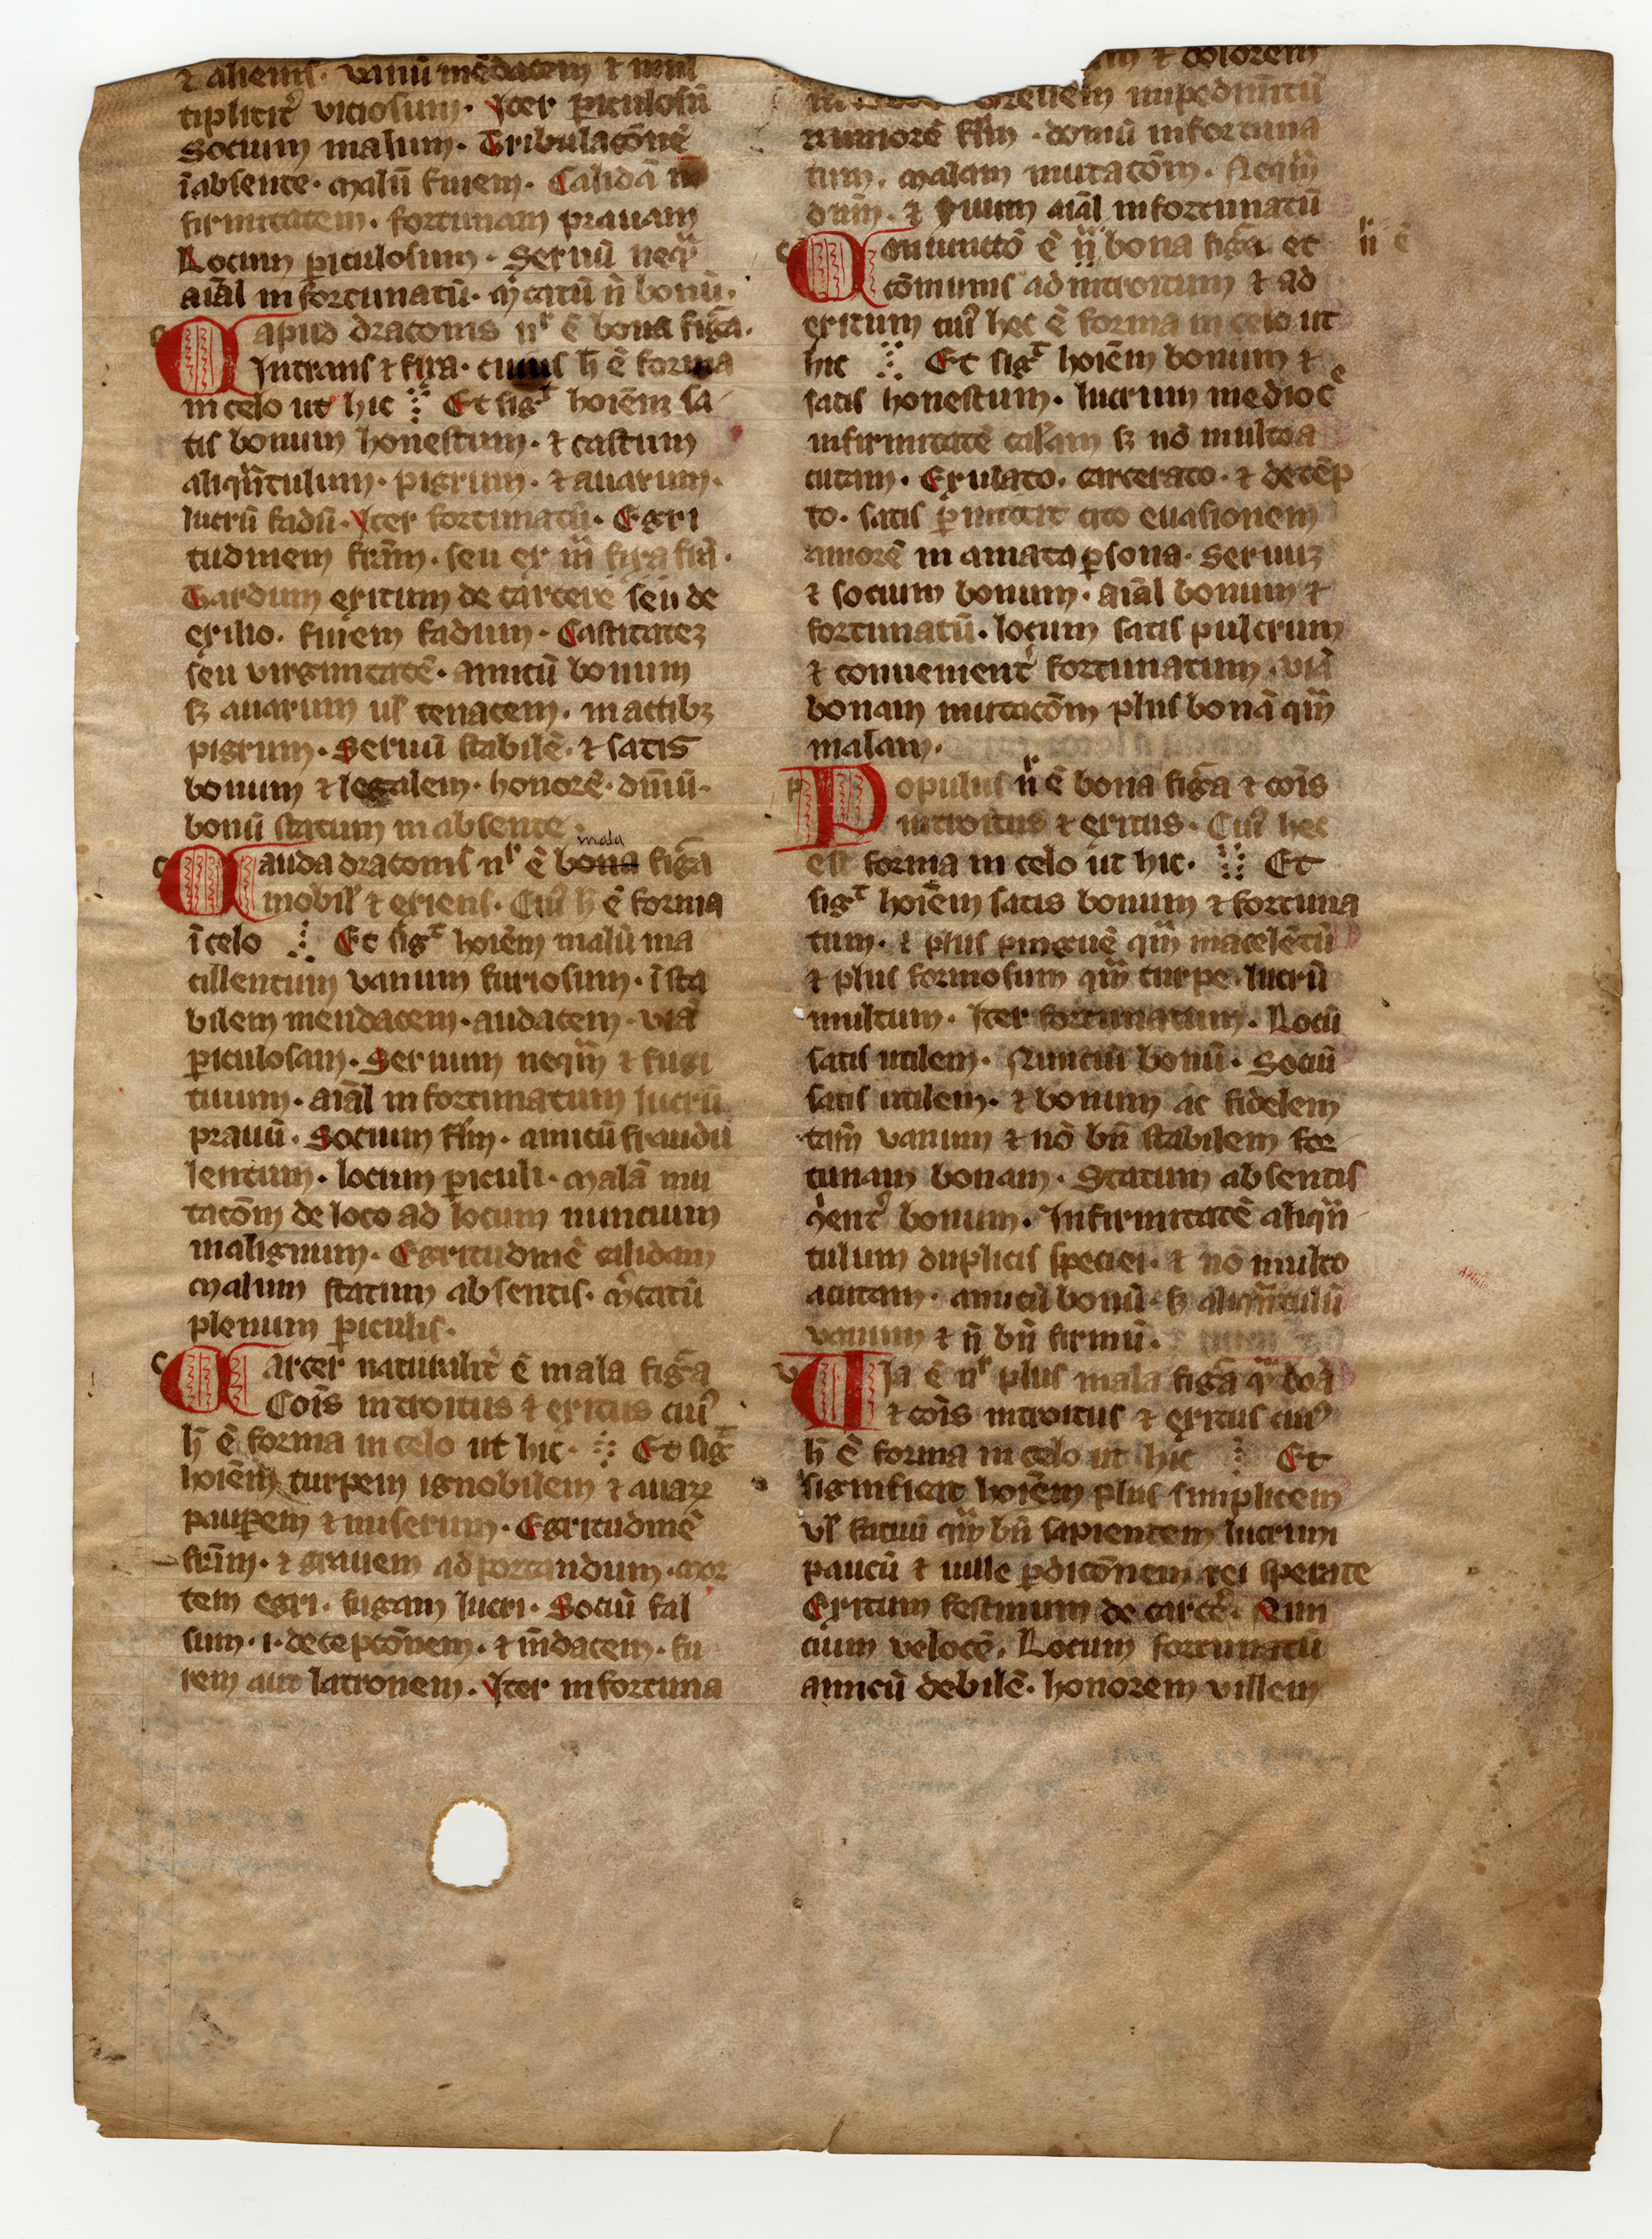 ⁊ alienis. vanū mēdacem ⁊ mul
tiplicit᷑ viciosum. Iter ꝑiculosū
Socium malum. Tribulacōnē
ī absente. malū finem. Calidā in
firmitatem. fortunam prauam
Locum ꝑiculosum. Seruū neqͣ
aīal infortunatū. m̄catū n̄ bonū.
c Capud draconis nͬ ē bona figᷓa.
Intrans ⁊ fixa. cuius h̄ ē forma
in celo ut hic Et sigᵗ hoīem sa
tis bonum honestum. ⁊ castum
aliqͣntulum. pigrum. ⁊ auarum.
lucrū tadū. Iter fortunatū. Egri
tudinem firām. seu ex
Tardum exitum de carcere seu de
exilio. finem tadum. Castitateꝫ
seu virginitatē. amicū bonum
sꝫ auarum ul̓ tenacem. in actibꝫ
pigrum. Seruū stabilē. ⁊ satis
bonum ⁊ legalem. honorē. diuiū.
bonū statum in absente.
mala
c Cauda draconis nͬ ē bona figᷓa
mobil̓ ⁊ exiens. Cuiꝰ h̄ ē forma
ī celo Et sigᵗ hoīem malū ma
cillentum vanum furiosum. īsta
bilem mendacem. audacem. viā
ꝑiculosam. Seruum neqͣm ⁊ fugi
tiuum. aīal infortunatum lucrū
prauū. Socium fl̄m. amicū fraudu
lentum. locum ꝑiculi. malā mu
tacōm de loco ad locum nuncium
malignum. Egritudinē calidam
malum statum absentis. m̄catū
plenum ꝑiculis.
c Carcer naturalit᷑ ē mala figᷓa
Cōis introitus ⁊ exitus cuiꝰ
h̄ ē forma in celo ut hic. Et sigᵗ
hoīem turpem ignobilem ⁊ auaꝝ
pauꝑem ⁊ miserum. Egritudinē
firām. ⁊ grauem ad portandum. mor
tem egri. fugam lucri. Sociū fal
sum. i. deceptōnem. ⁊ m̄dacem. fu
rem aut latronem. Iter infortuna
am ⁊ dolorem
impedim̄tū
rumorē fl̄m. domū infortuna
tum. malam mutacōm. Neqͣm
⁊ aīal infortunatū
c Coniunctō ē nͬ bona figᷓa et nͬ ē
cōmunis ad introitum ⁊ ad
exitum cuiꝰ hec ē forma in celo ut
hic Et sigᵗ hoīem bonum ⁊
satis honestum. lucrum medioc̄e
infirmitatē cal̓am sꝫ nō multo a
cutam. Exulato. carcerato. ⁊ detēp
to. satis ꝓmittit cito euasionem
amorē in amata ꝑsona. Seruuꝫ
⁊ socium bonum. aīal bonum ⁊
fortunatū. locum satis pulcrum
⁊ conuenient᷑ fortunatum. viā
bonam mutacōm plus bonā qͣm
malam.
p Populus nͬ ē bona figᷓa ⁊ cōis
introitus ⁊ exitus. Cuiꝰ hec
est forma in celo ut hic. Et
sigᵗ hoīem satis bonum ⁊ fortuna
tum. ⁊ plus pinguē qͣm macelētū
⁊ plus formosum qͣm turpe. lucrū
multum. Iter fortunatum. Locū
satis utilem. Nunciū bonū. Sociū
satis utilem. ⁊ bonum ac fidelem
tam̄ vanum ⁊ nō bn̄ stabilem for
tunam bonam. Statum absentis
bonum. Infirmitatē aliqͣn
tulum duplicis speciei. ⁊ nō multo
acutam. amicū bonū. sꝫ aliqͣntulū
vanum ⁊ n̄ bn̄ firmū.
v Via ē nͬ plus mala figᷓa qͣ boā
⁊ cōis introitus ⁊ exitus cuiꝰ
h̄ ē forma in celo ut hic Et
significat hoīem plus simplicem
ul̓ fatuū qͣm bn̄ sapientem lucrum
paucū ⁊ uille ꝑdicōnem rei sperate
Exitum festinum de carc̄e. Nun
cium velocē. Locum fortunatū
amicū debilē. honorem villem